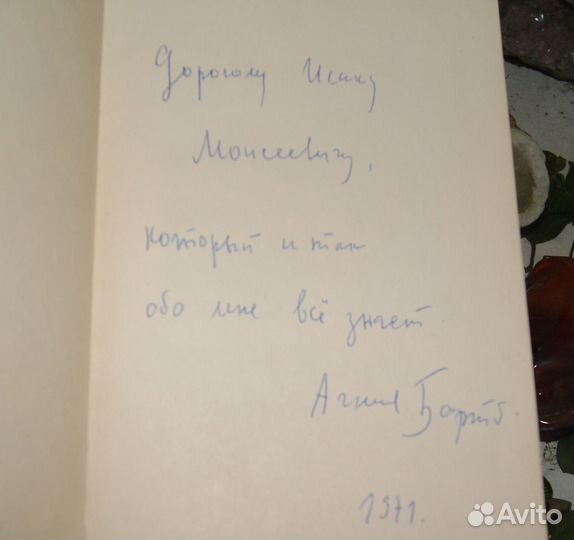 Дорогому Исаку
Моисеевичу,
который и так
обо мне всё знает
Агния Барто.
1971.
Avito